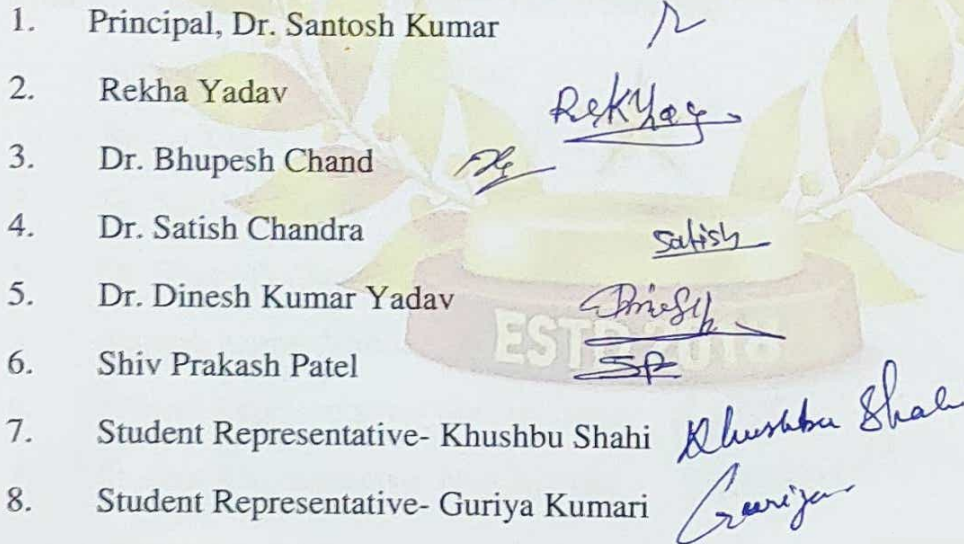 1. Principal, Dr. Santosh Kumar
2. Rekha Yadav RekYag
3. Dr. Bhupesh Chand
4. Dr. Satish Chandra Satish
5. Dr. Dinesh Kumar Yadav Dinesh
ESTD 2018
6. Shiv Prakash Patel SP
7. Student Representative- Khushbu Shahi Khushbu Shahi
8. Student Representative- Guriya Kumari Guriya